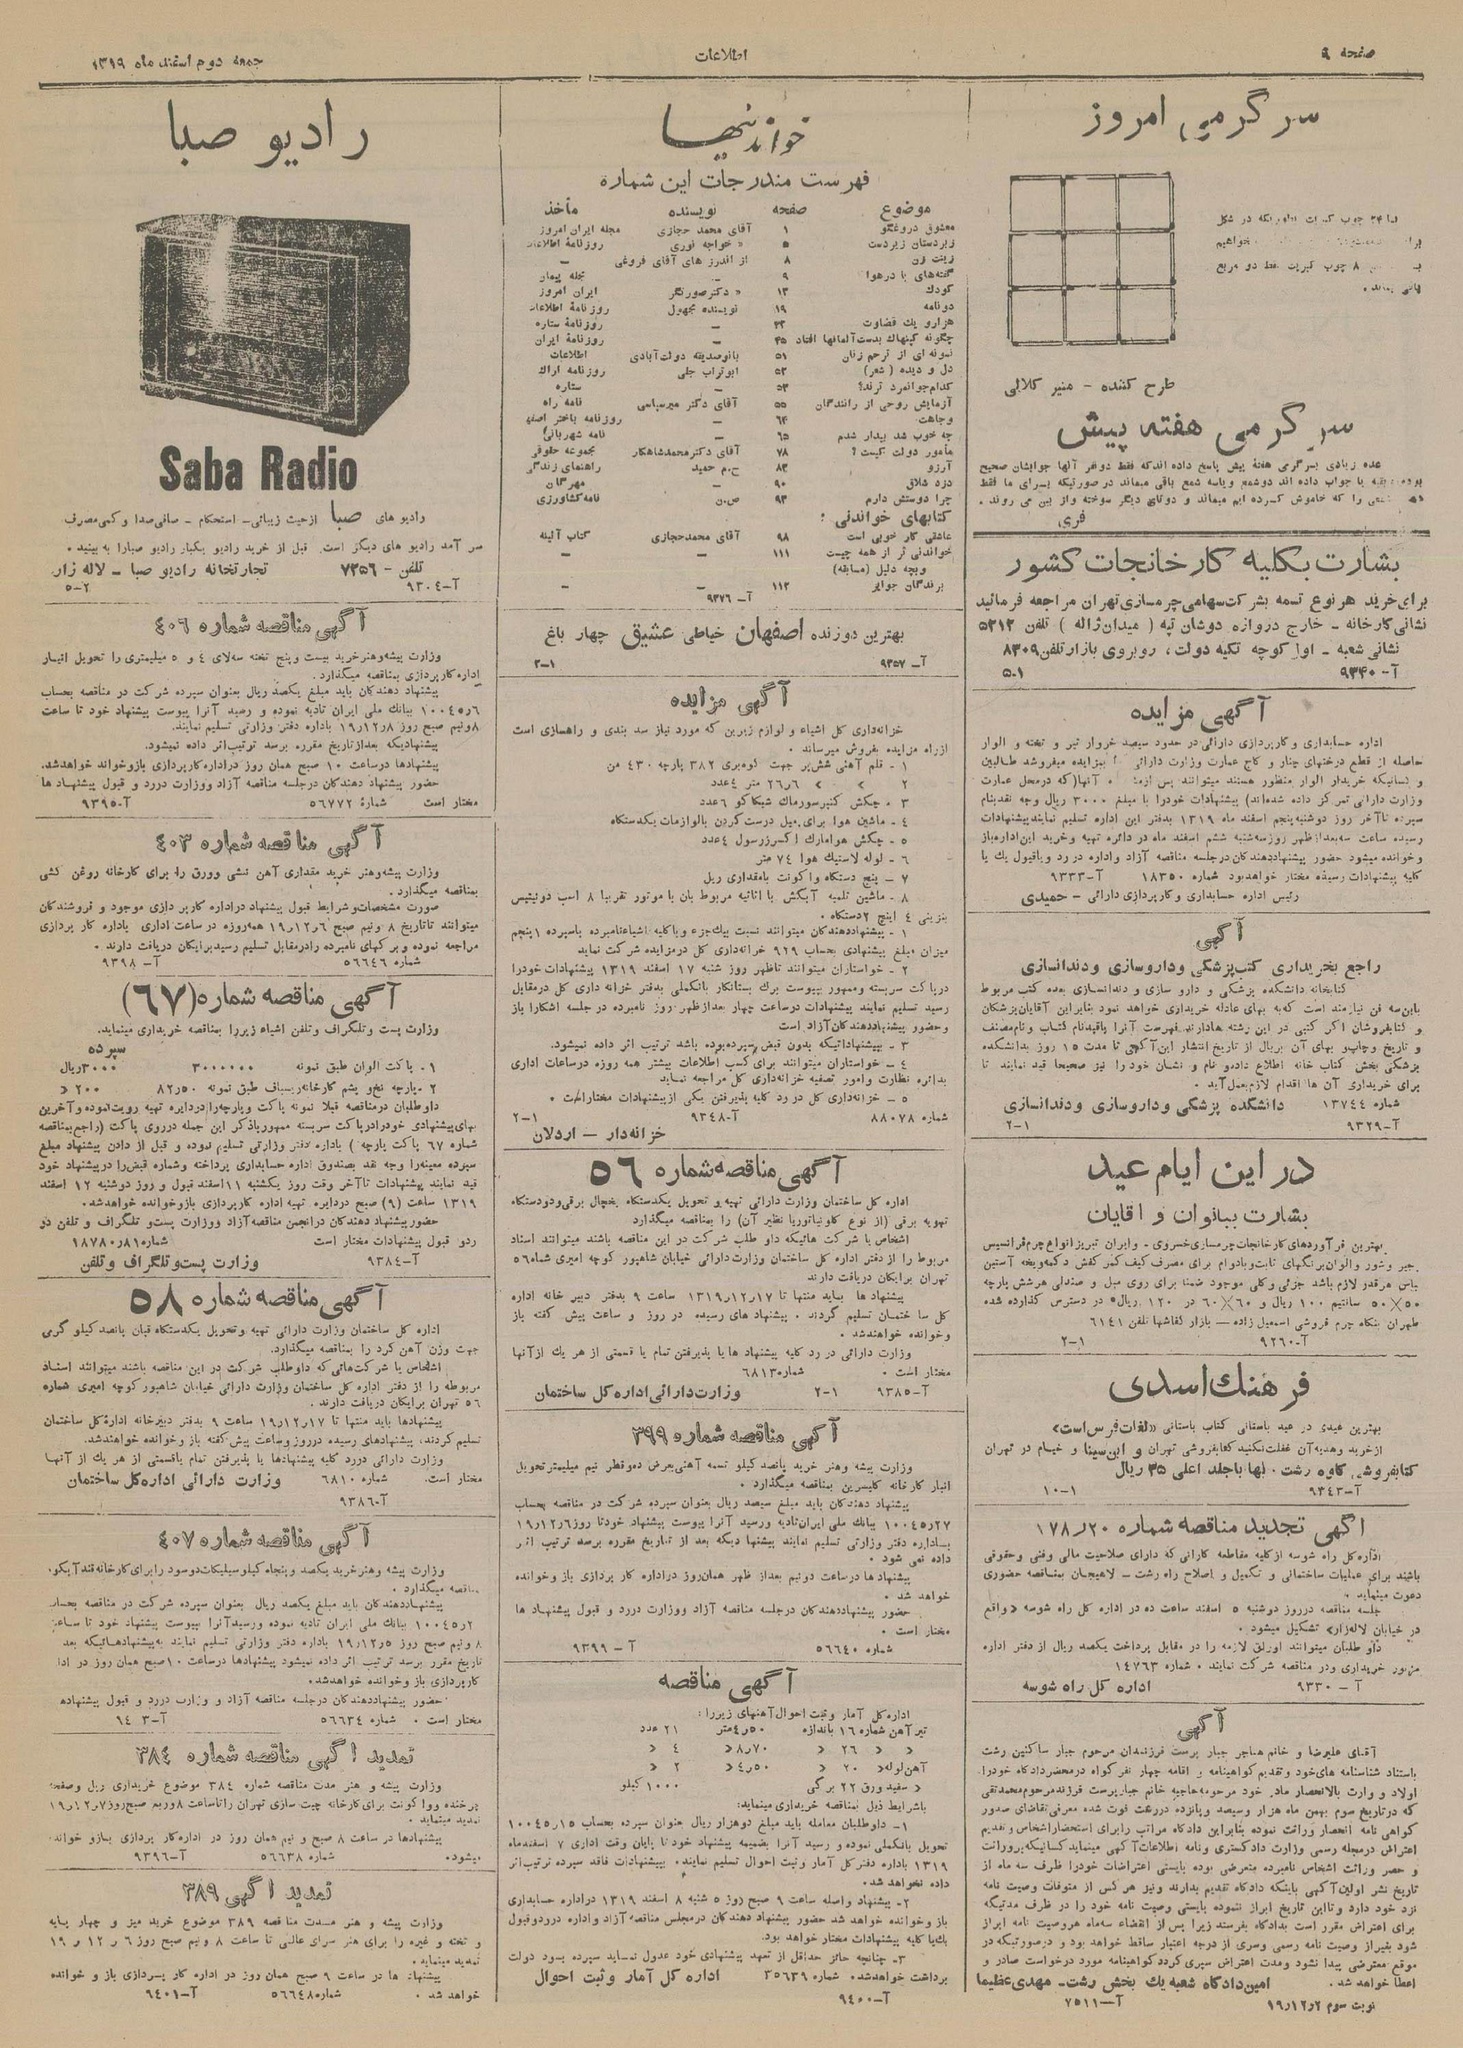 صفحه ۹
اطلاعات
جمعه دوم اسفند ماه ۱۳۱۹
سرگرمی امروز
طرح کننده - منیر کلالی
سرگرمی هفته پیش
عده زیادی بسرگرمی هفتهٔ پیش پاسخ داده اندکه فقط دونفر آنها جوابشان صحیح
فری
بشارت بکلیه کارخانجات کشور
برای خرید هر نوع تسمه بشرکت سهامی چرمسازی تهران مراجعه فرمائید
نشانی کارخانه - خارج دروازه دوشان تپه ( میدان ژاله ) تلفن ۵۲۱۲
نشانی شعبه - اول کوچه تکیه دولت، روبروی بازار تلفن ۸۳۰۹
آ- ۹۳۴۰ ۵-۱
آگهی مزایده
اداره حسابداری و کارپردازی دارائی در حدود سیصد خروار تیر و تخته و الوار
حاصله از قطع درختهای چنار و کاج عمارت وزارت دارائی بمزایده میفروشد طالبین
وزارت دارائی تمرکز داده شده‌اند) پیشنهادات خودرا با مبلغ ۳۰۰۰ ریال وجه نقد بنام
سپرده تا آخر روز دوشنبه پنجم اسفند ماه ۱۳۱۹ بدفتر این اداره تسلیم نمایند پیشنهادات
رسیده ساعت سه بعدازظهر روز سه‌شنبه ششم اسفند ماه در دائره تهیه و خرید این اداره باز
و خوانده میشود حضور پیشنهاددهندگان در جلسه مناقصه آزاد و اداره در رد و یا قبول یک یا
کلیه پیشنهادات رسیده مختار خواهدبود شماره ۱۸۳۵۰ آ-۹۳۳۳
رئیس اداره حسابداری و کارپردازی دارائی - حمیدی
آگهی
راجع بخریداری کتب پزشکی و داروسازی و دندانسازی
کتابخانه دانشکده پزشکی و دارو سازی و دندانسازی بعده کتب مربوط
باین سه فن نیازمند است که به بهای عادله خریداری خواهد نمود بنابراین آقایان پزشکان
و کتابفروشان اگر کتبی در این رشته ها دارند فهرست آنرا باقیدنام کتاب و نام مصنف
و تاریخ و چاپ و بهای آن بریال از تاریخ انتشار این آگهی تا مدت ۱۵ روز بدانشکده
پزشکی بخش کتاب خانه اطلاع داده و نام و نشان خود را نیز صحیحا قید نمایند تا
برای خریداری آن ها اقدام لازم بعمل آید .
شماره ۱۳۷۴۴ دانشکده پزشکی و داروسازی و دندانسازی
آ-۹۳۲۹ ۲-۱
در این ایام عید
بشارت ببانوان و اقایان
بهترین فرآوردهای کارخانجات چرمسازی خسروی - و ایران تبریز انواع چرم فرانسیس
لباس هرقدر لازم باشد جزئی و کلی موجود ضمنا برای روی مبل و صندلی هرشش پارچه
۵۰×۵۰ سانتیم ۱۰۰ ریال و ۶۰×۶۰ در ۱۲۰ ریال در دسترس گذارده شده
طهران بنگاه چرم فروشی اسمعیل زاده - بازار کفاشها تلفن ۶۱۴۱
آ-۹۲۶۰ ۲-۱
فرهنگ اسدی
بهترین عیدی در عید باستانی کتاب باستانی «لغات فرس است»
از خرید و هدیه آن غفلت نکنید کتابفروشی تهران و ابن‌سینا و خیام در تهران
کتابفروشی کاوه رشت. بها با جلد اعلی ۳۵ ریال
آ-۹۳۴۳ ۱۰-۱
آگهی تجدید مناقصه شماره ۱۷۸ر۲۰
اداره کل راه شوسه از کلیه مقاطعه کارانی که دارای صلاحیت مالی و فنی و حقوقی
باشند برای عملیات ساختمانی و تکمیل و اصلاح راه رشت - لاهیجان بمناقصه حضوری
دعوت مینماید .
جلسه مناقصه درروز دوشنبه ۵ اسفند ساعت ده در اداره کل راه شوسه « واقع
در خیابان لاله‌زار» تشکیل میشود .
داو طلبان میتوانند اوراق لازمه را در مقابل پرداخت یکصد ریال از دفتر اداره
مزبور خریداری و در مناقصه شرکت نمایند . شماره ۱۴۷۶۳
آ - ۹۳۳۰ اداره کل راه شوسه
آگهی
آقای علیرضا و خانم هاجر جبار پرست فرزندان مرحوم جبار ساکنین رشت
باستناد شناسنامه های خود و تقدیم گواهینامه و اقامه چهار نفر گواه در محضر دادگاه خودرا
که در تاریخ سوم بهمن ماه هزار و سیصد و پانزده در رشت فوت شده معرفی تقاضای صدور
گواهی نامه انحصار وراثت نموده بنابراین دادگاه مراتب را برای استحضار اشخاص و تقدیم
اعتراض در مجله رسمی وزارت دادگستری و نامه اطلاعات آگهی مینماید کسانیکه بروراثت
و حصر وراثت اشخاص نامبرده متعرضی بوده بایستی اعتراضات خودرا ظرف سه ماه از
تاریخ نشر اولین آگهی باینکه دادگاه تقدیم بدارند و نیز هر کس از متوفات وصیت نامه
نزد خود دارد و تا این تاریخ ابراز ننموده بایستی وصیت نامه خود را در ظرف مدتیکه
برای اعتراض مقرر است بدادگاه بفرستد زیرا پس از انقضاء سه‌ماه هر وصیت نامه ابراز
شود بغیر از وصیت نامه رسمی و سری از درجه اعتبار ساقط خواهد بود و در صورتیکه در
موقع معترضی پیدا نشود و مدت اعتراض سپری گردد گواهینامه مورد درخواست صادر و
اعطا خواهد شد . امین دادگاه شعبه یك بخش رشت- مهدی عظیما
نوبت سوم ۱۹ر۱۲ر۲ آ-۷۵۱۱
خواندنیها
فهرست مندرجات این شماره
موضوع صفحه نویسنده مأخذ
معشوق دروغگو ۱ آقای محمد حجازی مجله ایران امروز
زبردستان زیردست ۵ « خواجه نوری روزنامهٔ اطلاعات
زینت زن ۸ از اندرز های آقای فروغی -
گفته‌های با در هوا ۹ مجله پیمان
کودك ۱۳ « دکتر صورتگر ایران امروز
دونامه ۱۹ نویسنده مجهول روزنامهٔ اطلاعات
هزار و یك قضاوت ۲۳ - روزنامهٔ ستاره
چگونه کپنهاك بدست آلمانها افتاد ۳۵ - روزنامهٔ ایران
نمونه ای از ترحم زنان ۵۱ بانو صدیقه دولت آبادی اطلاعات
دل و دیده (شعر) ۵۲ ابوتراب جلی روزنامه اراك
کدام جوانمرد ترند؟ ۵۳ - ستاره
آزمایش روحی از رانندگان ۵۵ آقای دکتر میرسپاسی نامه راه
وجاهت ۶۴ - روزنامه باختر اصفهان
چه خوب شد بیدار شدم ۶۵ - نامه شهربانی
مأمور دولت کیست؟ ۷۸ آقای دکتر محمد شاهکار مجموعه حقوقی
آرزو ۸۳ ح.م حمید راهنمای زندگی
دزد شلاق ۹۰ - مهرگان
چرا دوستش دارم ۹۳ ص.ن نامه کشاورزی
کتابهای خواندنی :
عاشقی کار خوبی است ۹۸ آقای محمدحجازی کتاب آئینه
خواندنی تر از همه چیست ۱۱۱ - -
وبچه دلیل (مسابقه)
برندگان جوایز ۱۱۲ -
آ- ۹۳۷۶
بهترین دوزنده اصفهان خیاطی عشیق چهار باغ
آ- ۹۳۵۷ ۲-۱
آگهی مزایده
خزانه‌داری کل اشیاء و لوازم زیرین که مورد نیاز سد بندی و راهسازی است
ازراه مزایده بفروش میرساند .
۱ - قلم آهنی شش‌پر جهت کوه‌بری ۳۸۲ پارچه ۴۳۰ من
۲ » » ۲۶ر۶ متر ۴عدد
۳ - چکش کنپرسورماك شیکاکو ۶عدد
۴ - ماشین هوا برای میل درست کردن بالوازمات یکدستگاه
۵ - چکش هوامارك اکسررسول ۴عدد
۶ - لوله لاستیك هوا ۷۴ متر
۷ - پنج دستگاه واگونت بامقداری ریل
۸ - ماشین تلمبه آبکش با اثاثیه مربوط بان با موتور تقریبا ۸ اسب دوتیتس
بنزینی ۴ اینچ ۲دستگاه .
۱ - پیشنهاددهندگان میتوانند نسبت بیك جزء و یا کلیه اشیاء نامبرده با سپرده ۱ پنجم
میزان مبلغ پیشنهادی بحساب ۹۲۹ خزانه‌داری کل در مزایده شرکت نماید
۲ - خواستاران میتوانند تاظهر روز شنبه ۱۷ اسفند ۱۳۱۹ پیشنهادات خودرا
درپاکت سربسته و ممهور بپیوست برك بستانکار بانکملی بدفتر خزانه داری کل درمقابل
رسید تسلیم نمایند پیشنهادات درساعت چهار بعدازظهر روز نامبرده در جلسه اشکارا باز
و حضور پیشنهاددهندگان آزاد است
۳ - بپیشنهاداتیکه بدون قبض سپرده بوده باشد ترتیب اثر داده نمیشود.
۴ - خواستاران میتوانند برای کسب اطلاعات بیشتر همه روزه درساعات اداری
بدائره نظارت وامور تصفیه خزانه‌داری کل مراجعه نماید
۵ - خزانه‌داری کل در رد کلیه یا پذیرفتن یکی از پیشنهادات مختار است .
شماره ۸۸۰۷۸ آ-۹۳۴۸ ۲-۱
خزانه دار - اردلان
آگهی مناقصه شماره ۵۶
اداره کل ساختمان وزارت دارائی تهیه و تحویل یکدستگاه یخچال برقی و دو دستگاه
تهویه برقی (از نوع کاونیا توریا نظیر آن) را بمناقصه میگذارد
اشخاص یا شرکت هائیکه داو طلب شرکت در این مناقصه باشند میتوانند اسناد
مربوط را از دفتر اداره کل ساختمان وزارت دارائی خیابان شاهپور کوچه امیری شماه ۵۶
تهران برایگان دریافت دارند
پیشنهاد ها بباید منتها تا ۱۳۱۹ر۱۲ر۱۷ ساعت ۹ بدفتر دبیر خانه اداره
کل سا ختمان تسلیم گردند . پیشنهاد های رسیده در روز و ساعت پیش گفته باز
و خوانده خواهندشد .
وزارت دارائی در رد کلیه پیشنهاد ها یا پذیرفتن تمام یا قسمتی از هر یك از آنها
مختار است . شماره ۶۸۱۳
آ-۹۳۸۵ ۲-۱ وزارت دارائی اداره کل ساختمان
آگهی مناقصه شماره ۳۹۹
وزارت پیشه و هنر خرید پانصد کیلو تسمه آهنی بعرض ده و قطر نیم میلیمتر تحویل
انبار کارخانه گلیسرین بمناقصه میگذارد .
پیشنهاد دهندگان باید مبلغ سیصد ریال بعنوان سپرده شرکت در مناقصه بحساب
۱۰۰۴۵ر۲۷ ببانك ملی ایران تادیه و رسید آنرا پیوست پیشنهاد خود تا روز ۱۹ر۱۲ر۶
بباداره دفتر وزارتی تسلیم نمایند پیشنها دیکه بعد از تاریخ مقرره برسد ترتیب اثر
داده نمی شود .
پیشنهاد ها درساعت دونیم بعداز ظهر همان روز دراداره کار پردازی باز و خوانده
خواهد شد .
حضور پیشنهاددهندگان درجلسه مناقصه آزاد و وزارت دررد و قبول پیشنهاد ها
مختار است .
شماره ۵۶۶۴۰ آ - ۹۳۹۹
آگهی مناقصه
اداره کل آمار و ثبت احوال آهنهای زیر را :
تیر آهن شماره ۱۶ باندازه ۴ر۵۰متر ۲۱ عدد
« « ۲۶ « ۸ر۷۰ « ۴ «
آهن لوله« ۲۰ « ۴ر۵۰ « ۲ «
« سفید ورق ۲۲ برگی « ۱۰۰۰ کیلو
باشرایط ذیل بمناقصه خریداری مینماید:
۱- داوطلبان معامله باید مبلغ دوهزار ریال بعنوان سپرده بحساب ۱۰۰۴۵ر۱۵
تحویل بانکملی نموده و رسید آنرا بضمیمه پیشنهاد خود تا پایان وقت اداری ۷ اسفندماه
۱۳۱۹ باداره دفتر کل آمار و ثبت احوال تسلیم نمایند. بپیشنهادات فاقد سپرده ترتیب اثر
داده نخواهد شد.
۲- پیشنهاد واصله ساعت ۹ صبح روز ۵ شنبه ۸ اسفند ۱۳۱۹ دراداره حسابداری
باز و خوانده خواهد شد حضور پیشنهاد دهندگان درمجلس مناقصه آزاد و اداره دررد و قبول
یك یا کلیه پیشنهادات مختار خواهد بود.
۳- چنانچه حائز حداقل از تعهد پیشنهادی خود عدول نماید سپرده بسود دولت
برداشت خواهدشد. شماره ۳۵۶۳۹ اداره کل آمار و ثبت احوال
آ-۹۴۰۰
رادیو صبا
Saba Radio
رادیو های صبا ازحیث زیبائی- استحکام - صافی صدا و کمی مصرف
سر آمد رادیو های دیگر است. قبل از خرید رادیو یکبار رادیو صبارا به بینید.
تلفن - ۷۳۵۶ تجارتخانه رادیو صبا - لاله زار
آ-۹۳۰۴ ۵-۲
آگهی مناقصه شماره ۴۰۶
وزارت پیشه و هنر خرید بیست و پنج تخته سه‌لای ۴ و ۵ میلیمتری را تحویل انبار
اداره کار پردازی بمناقصه میگذارد.
پیشنهاد دهندگان باید مبلغ یکصد ریال بعنوان سپرده شرکت در مناقصه بحساب
۱۰۰۴۵ر۶ ببانك ملی ایران تادیه نموده و رسید آنرا پیوست پیشنهاد خود تا ساعت
۸ونیم صبح روز ۱۹ر۱۲ر۸ باداره دفتر وزارتی تسلیم نمایند.
پیشنهادیکه بعداز تاریخ مقرره برسد ترتیب اثر داده نمیشود.
پیشنهادها درساعت ۱۰ صبح همان روز دراداره کارپردازی باز و خوانده خواهدشد.
حضور پیشنهاد دهندگان درجلسه مناقصه آزاد و وزارت دررد و قبول پیشنهاد ها
مختار است شمارهٔ ۵۶۷۷۲ آ-۹۳۹۵
آگهی مناقصه شماره ۴۰۳
وزارت پیشه و هنر خرید مقداری آهن نبشی و ورق را برای کارخانه روغن کشی
بمناقصه میگذارد.
صورت مشخصات و شرایط قبول پیشنهاد دراداره کارپر دازی موجود و فروشندگان
میتوانند تاتاریخ ۸ ونیم صبح ۱۹ر۱۲ر۶ همه روزه در ساعت اداری باداره کار پردازی
مراجعه نموده و برگهای نامبرده رادرمقابل تسلیم رسید برایگان دریافت دارند.
شماره ۵۶۶۴۶ آ-۹۳۹۸
آگهی مناقصه شماره (۶۷)
وزارت پست و تلگراف و تلفن اشیاء زیر را بمناقصه خریداری مینماید.
سپرده
۱- پاکت الوان طبق نمونه ۳۰۰۰۰۰۰ ۳۰۰۰ریال
۲- پارچه نخ و پشم کارخانه ریسباف طبق نمونه ۸۲ر۵۰ ۲۰۰ «
داوطلبان درمناقصه قبلا نمونه پاکت و پارچه رادر دایره تهیه رویت نموده و آخرین
بهای پیشنهادی خودرا درپاکت سربسته ممهور باذکر این جمله درروی پاکت (راجع بمناقصه
شماره ۶۷ پاکت پارچه) باداره دفتر وزارتی تسلیم نموده و قبل از دادن پیشنهاد مبلغ
سپرده معینه را وجه نقد بصندوق اداره حسابداری پرداخته و شماره قبض را در پیشنهاد خود
قید نمایند پیشنهادات تا آخر وقت روز یکشنبه ۱۱ اسفند قبول و روز دوشنبه ۱۲ اسفند
۱۳۱۹ ساعت (۹) صبح دردایره تهیه اداره کارپردازی باز و خوانده خواهدشد.
حضور پیشنهاد دهندگان درانجمن مناقصه آزاد و وزارت پست و تلگراف و تلفن در
ردو قبول پیشنهادات مختار است شماره ۱۸۷۸۰ر۸۱
آ-۹۳۸۴ وزارت پست و تلگراف و تلفن
آگهی مناقصه شماره ۵۸
اداره کل ساختمان وزارت دارائی تهیه و تحویل یکدستگاه قپان پانصد کیلو گرمی
جهت وزن آهن گرد را بمناقصه میگذارد.
اشخاص یا شرکت‌هائی که داوطلب شرکت در این مناقصه باشند میتوانند اسناد
مربوطه را از دفتر اداره کل ساختمان وزارت دارائی خیابان شاهپور کوچه امیری شماره
۵۶ تهران برایگان دریافت دارند.
پیشنهادها باید منتها تا ۱۹ر۱۲ر۱۷ ساعت ۹ بدفتر دبیرخانه ادارهٔ کل ساختمان
تسلیم گردند. پیشنهادهای رسیده درروز و ساعت پیش گفته باز و خوانده خواهندشد.
وزارت دارائی دررد کلیه پیشنهادها یا پذیرفتن تمام یاقسمتی از هر یك از آنها
مختار است. شماره ۶۸۱۰ وزارت دارائی اداره کل ساختمان
آ-۹۳۸۶
آگهی مناقصه شماره ۴۰۷
وزارت پیشه و هنر خرید یکصد و پنجاه کیلو سیلیکات دوسود را برای کارخانه قند آبکوه
بمناقصه میگذارد .
پیشنهاددهندگان باید مبلغ یکصد ریال بعنوان سپرده شرکت در مناقصه بحساب
۱۰۰۴۵ر۲ ببانك ملی ایران تادیه نموده و رسید آنرا بپیوست پیشنهاد خود تا ساعت
۸ ونیم صبح روز ۱۹ر۱۲ر۵ باداره دفتر وزارتی تسلیم نمایند به پیشنهادهائیکه بعد
تاریخ مقرر برسد ترتیب اثر داده نمیشود پیشنهادها درساعت ۱۰ صبح همان روز در
کارپردازی باز و خوانده خواهدشد.
حضور پیشنهاددهندگان درجلسه مناقصه آزاد و وزارت دررد و قبول پیشنهادها
مختار است . شماره ۵۶۶۳۴
تمدید آگهی مناقصه شماره ۳۸۴
وزارت پیشه و هنر مدت مناقصه شماره ۳۸۴ موضوع خریداری ریل و صفحه
چرخنده و واگونت برای کارخانه چیت سازی تهران را تاساعت ۸ وربع صبح روز ۱۹ر۱۲ر۷
تمدید مینماید .
پیشنهادها در ساعت ۸ صبح و نیم همان روز در اداره کار پردازی باز و خوانده
میشود. شماره ۵۶۶۳۸ آ-۹۳۹۶
تمدید آگهی ۳۸۹
وزارت پیشه و هنر مدت مناقصه ۳۸۹ موضوع خرید میز و چهار پایه
و تخته و غیره را برای هنر سرای عالی تا ساعت ۸ ونیم صبح روز ۶ ر ۱۲ ر ۱۹
تمدید مینماید.
پیشنهاد ها در ساعت ۹ صبح همان روز در اداره کار پردازی باز و خوانده
خواهد شد . شماره ۵۶۶۴۸ آ-۹۴۰۱